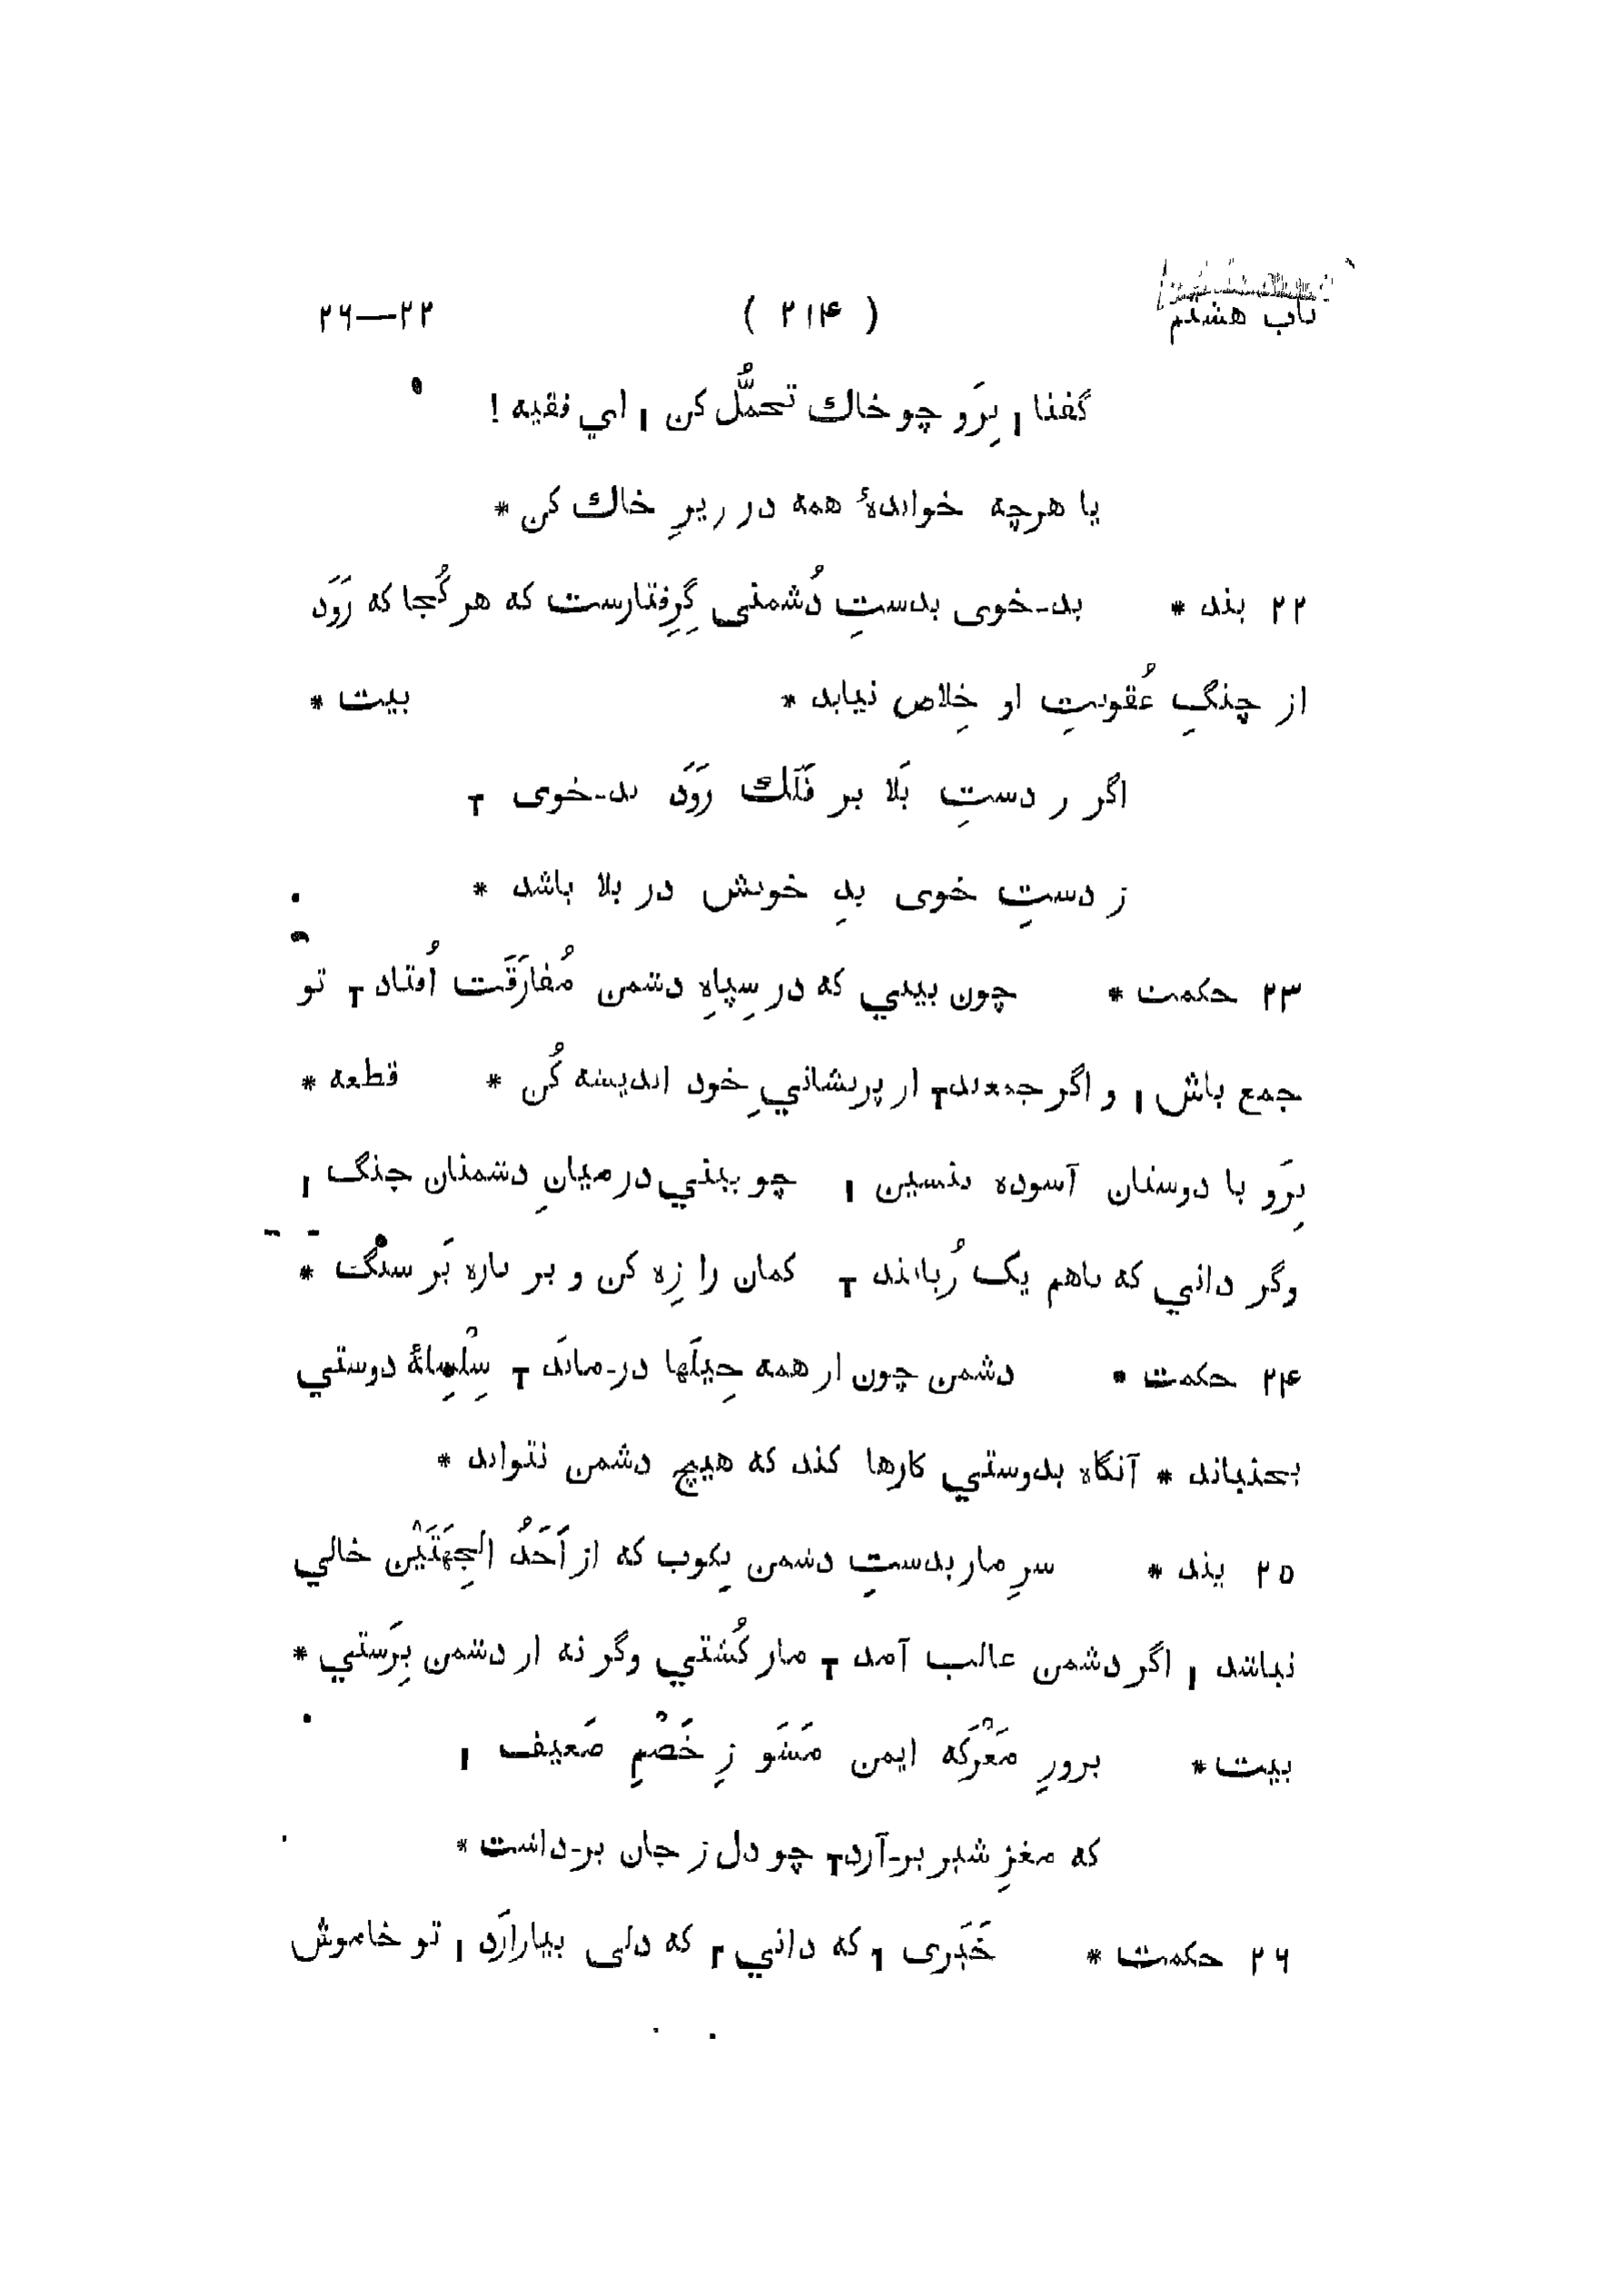 باب هشتم ( ۲۱۴ ) ۲۲—۲۶
گفتا بِرَو چو خاك تحمُّل كن اي فقيه !
يا هرچه خواندهٔ همه در زيرِ خاك كن *
۲۲ پند * بد-خوى بدستِ دُشمنى گِرِفتارست كه هر كُجا كه رَوَد
از چنگِ عُقوبتِ او خِلاص نيابد * بيت *
اگر ز دستِ بَلا بر فَلَك رَوَد بد-خوى
ز دستِ خوى بدِ خويش در بلا باشد *
۲۳ حكمت * چون بيني كه در سِپاهِ دشمن مُفارَقَت اُفتاد تو
جمع باش و اگر جمعند از پريشانيِ خود انديشه كُن * قطعه *
بِرَو با دوستان آسوده بنشين چو بيني درميانِ دشمنان جنگ
وگر داني كه باهم يک زُبانند كمان را زِه كن و بر باره بَر سنْگ *
۲۴ حكمت * دشمن چون از همه حِيلَها در-مانَد سِلْسِلهٔ دوستي
بجنباند * آنگاه بدوستي كارها كند كه هيچ دشمن نتواند *
۲۵ پند * سرِ مار بدستِ دشمن بِكوب كه از اَحَدُ الْجِهَتَيْن خالي
نباشد اگر دشمن غالب آمد مار كُشتي وگر نه از دشمن بِرَستي *
بيت * بروزِ مَعْرَكه ايمن مَشَو زِ خَصْمِ ضَعيف
كه مغزِ شير بر-آرد چو دل ز جان بر-داشت *
۲۶ حكمت * خَبَرى كه داني كه دلى بيازارَد تو خاموش